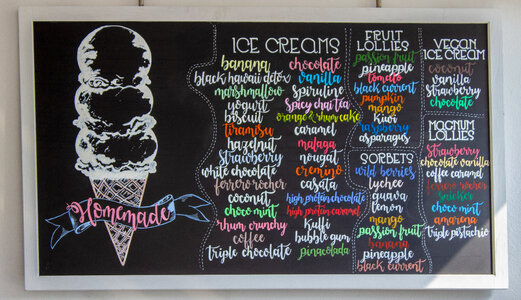 Homemade
ICE CREAMS
banana
black hawaii detox
marshmallow
yogurt
biscuit
tiramisu
hazelnut
strawberry
white chocolate
ferrero rocher
coconut
choco mint
rhum crunchy
coffee
triple chocolate
chocolate
vanilla
spiruline
spicy chai tea
orange & rhum cake
caramel
malaga
nougat
cremino
casata
high protein chocolate
high protein caramel
kulfi
bubble gum
pinacolada
FRUIT
LOLLIES
passion fruit
pineapple
tomato
black current
pumpkin
mango
kiwi
raspberry
asparagus
SORBETS
wild berries
lychee
guava
lemon
mango
passion fruit
banana
pineapple
black current
VEGAN
ICE CREAM
coconut
vanilla
strawberry
chocolate
MAGNUM
LOLLIES
Strawberry
chocolate vanilla
coffee caramel
ferrero rocher
choco mint
amarena
triple pistachio